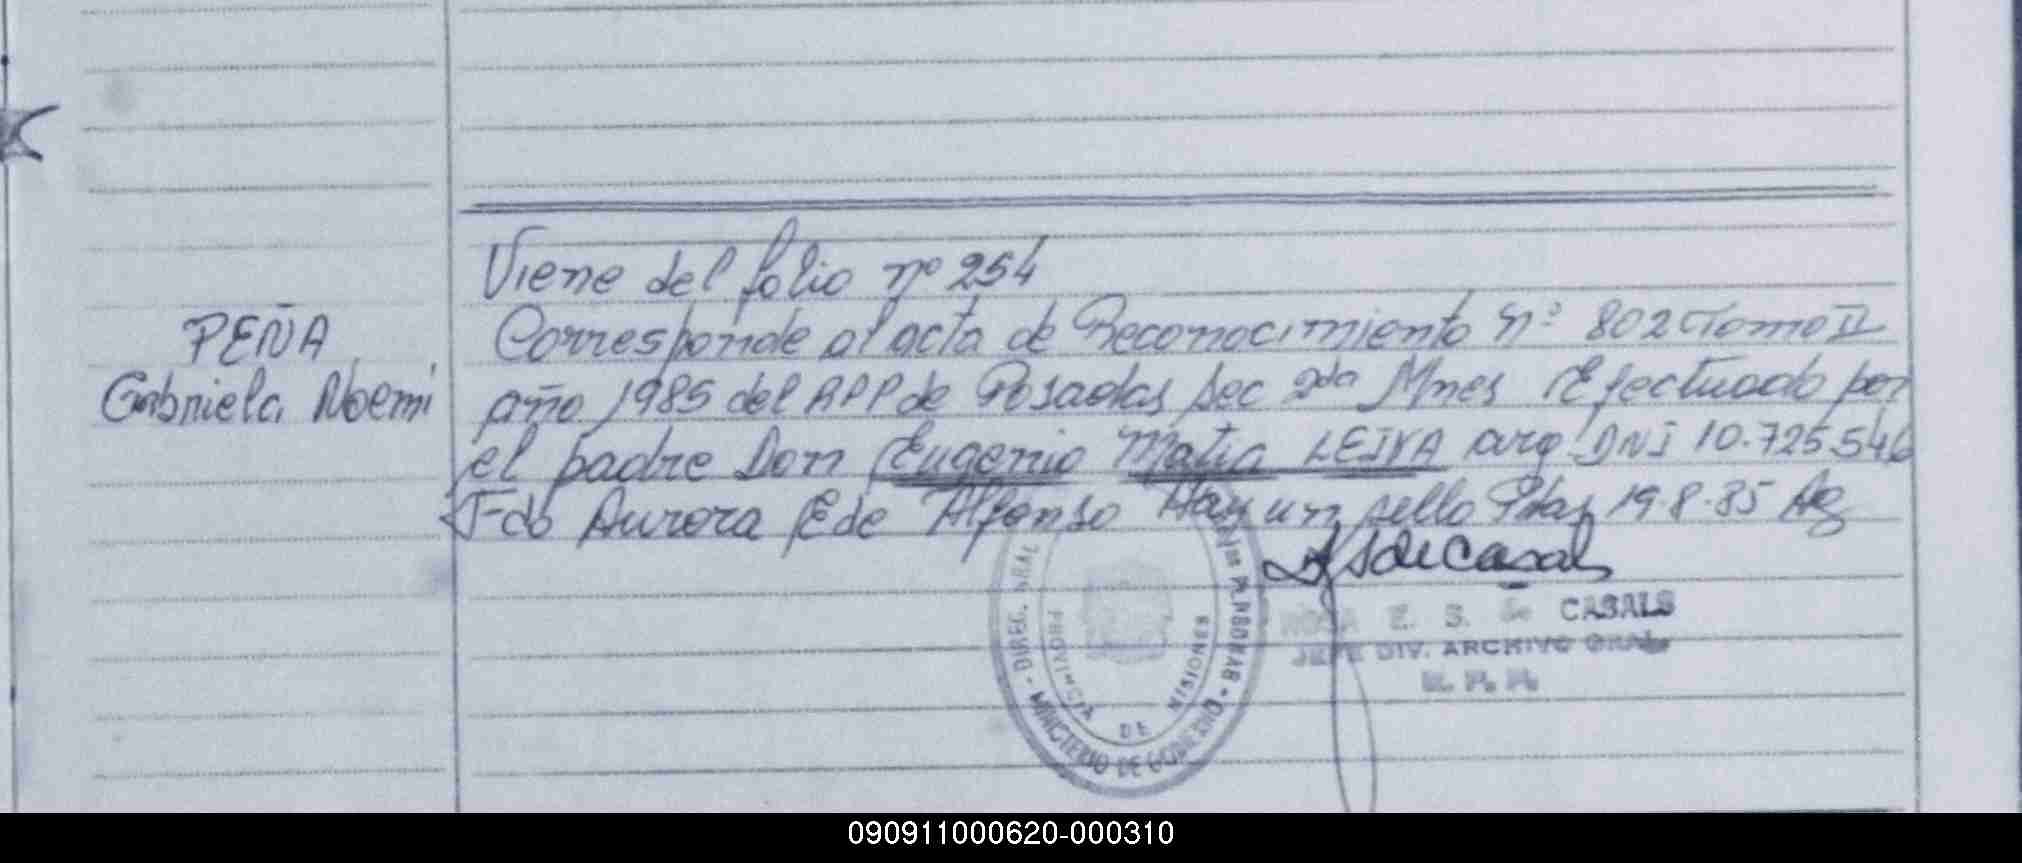 Viene del folio nº 254
PEÑA
Gabriela Noemi
Corresponde al acta de Reconocimiento Nº 802 Tomo II
año 1985 del RPP de Posadas Sec 2da Mnes Efectuado por
el padre Don Eugenio Matia LEIVA arg DNI 10.725.546
Fdo Aurora E de Alfonso Hay un sello Pdas 19-8-85
E. S. de CASALS
JEFE DIV. ARCHIVO GRAL.
R. P. P.
DIREC. GRAL
MINISTERIO DE GOBIERNO
PROVINCIA DE MISIONES
090911000620-000310